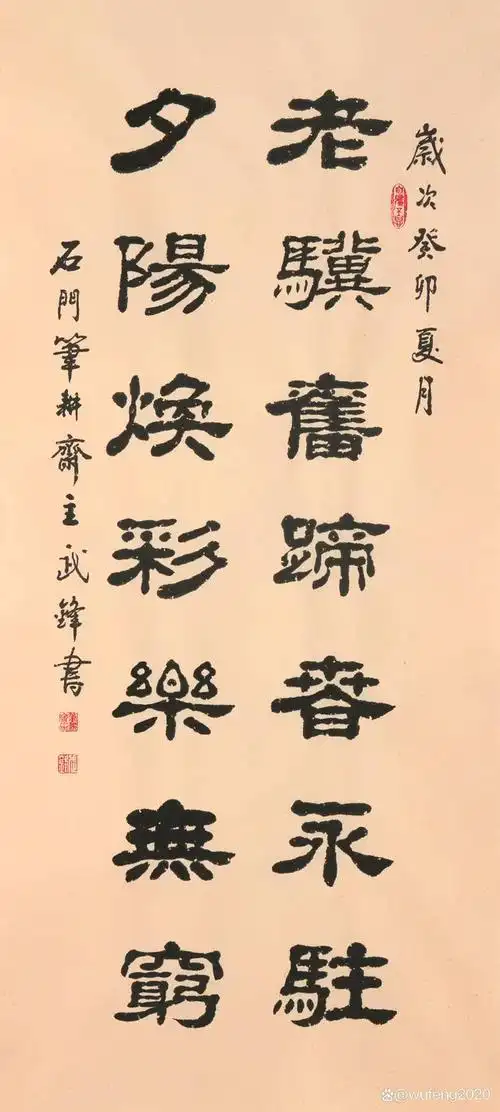 歲次癸卯夏月
老驥奮蹄春永駐
夕陽煥彩樂無窮
石門筆耕齋主武鋒書
@wufeng2020